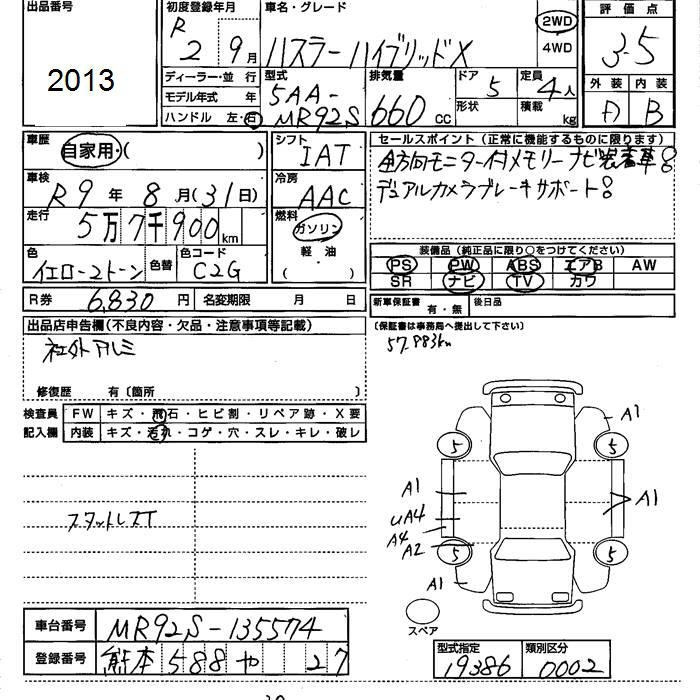 出品番号
2013
初度登録年月
R 2 9月
車名・グレード
ハスラーハイブリッドX
2WD
4WD
評価点
3.5
ディーラー・並 行
モデル年式 年
ハンドル 左・右
型式
5AA-
MR92S
排気量
660 CC
ドア 5
形状
定員 4人
積載 kg
外装 内装
A B
車歴
自家用・( )
シフト
IAT
車検
R9年8月(31日)
冷房
AAC
走行
5万7千900km
燃料
ガソリン
軽・油
( )
色
イエロー2トーン
色替
色コード
C2G
R券 6,830円 名変期限 月 日
セールスポイント (正常に機能するものに限ります)
全方向モニター付メモリーナビ装着車!
デュアルカメラブレーキサポート!
装備品 (純正品に限り○をつけてください)
PS PW ABS エアB AW
SR ナビ TV カワ
新車保証書 有・無 後日品
(保証書は事務局へ提出して下さい)
57,983km
出品店申告欄(不良内容・欠品・注意事項等記載)
社外アルミ
修復歴 有〔箇所 〕
検査員 FW キズ・飛石・ヒビ割・リペア跡・X要
記入欄 内装 キズ・汚れ・コゲ・穴・スレ・キレ・破レ
スタットレスT
A1
5 5
A1
A1
UA4
A4
A2
5 5
A1
スペア
車台番号 MR92S-135574
登録番号 熊本 588 や 27
型式指定 類別区分
19386 0002